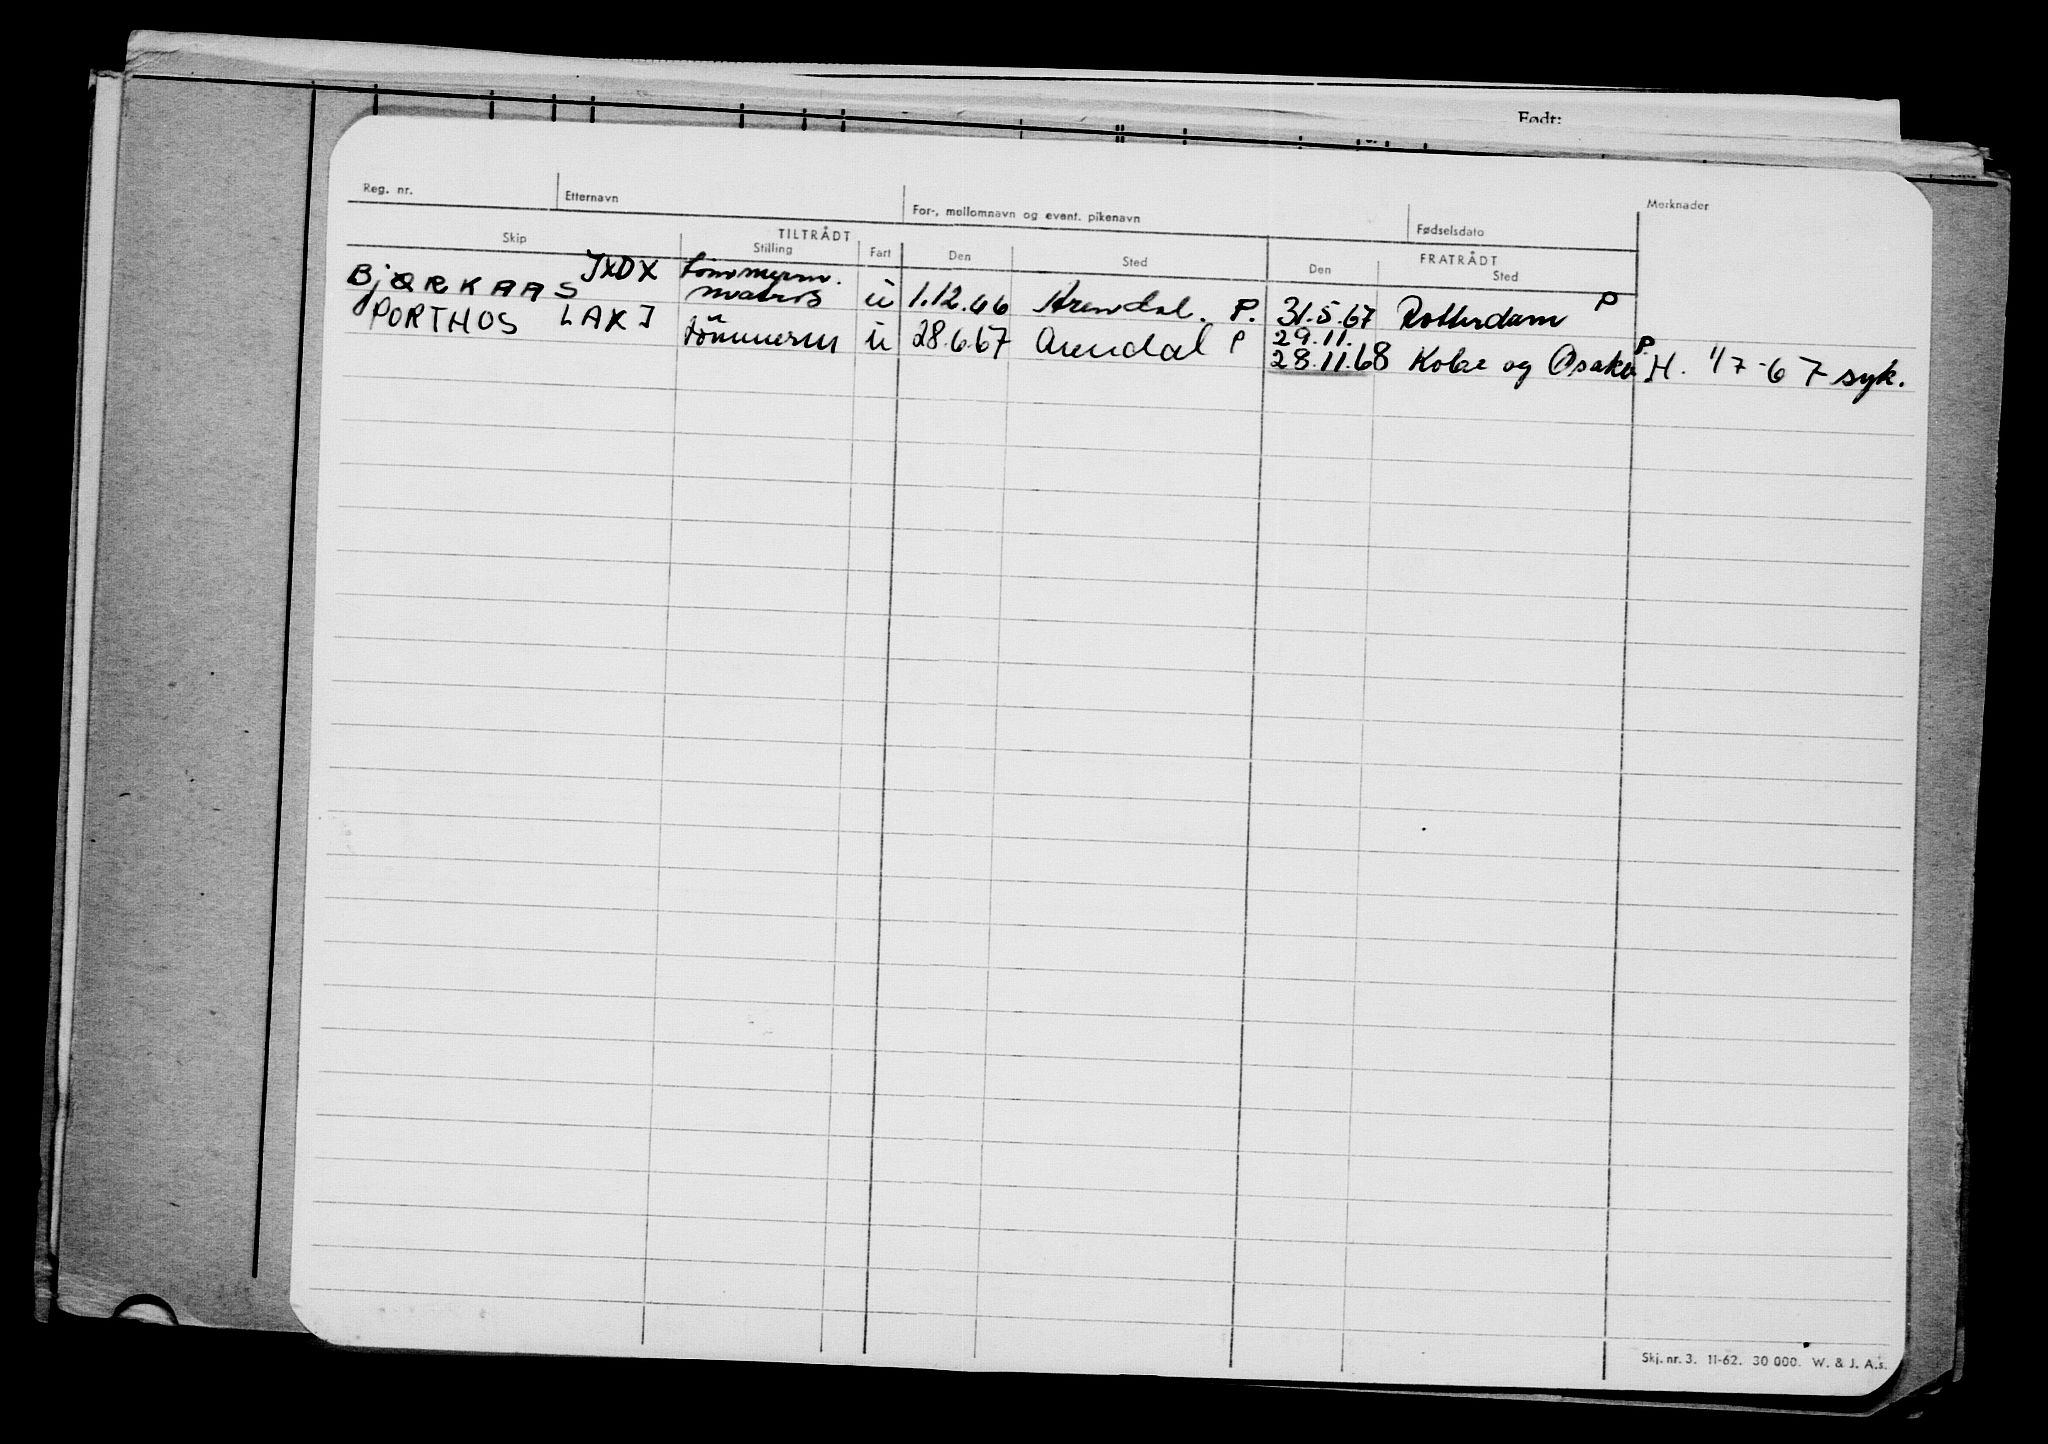 Født:
Reg. nr. Etternavn For-, mellomnavn og event. pikenavn Fødselsdato Merknader
TILTRÅDT FRATRÅDT
Skip Stilling Fart Den Sted Den Sted
BJØRKAAS JXDX tømmerm. matros u 1.12.66 Arendal. P. 31.5.67 Rotterdam P
PORTHOS LAKJ tömmerm u 28.6.67 Arendal P 29.11.
28.11.68 Kobe og Osaka P. H. 1/7-67 syk.
Skj. nr. 3. 11-62. 30 000. W. & J. A.s.